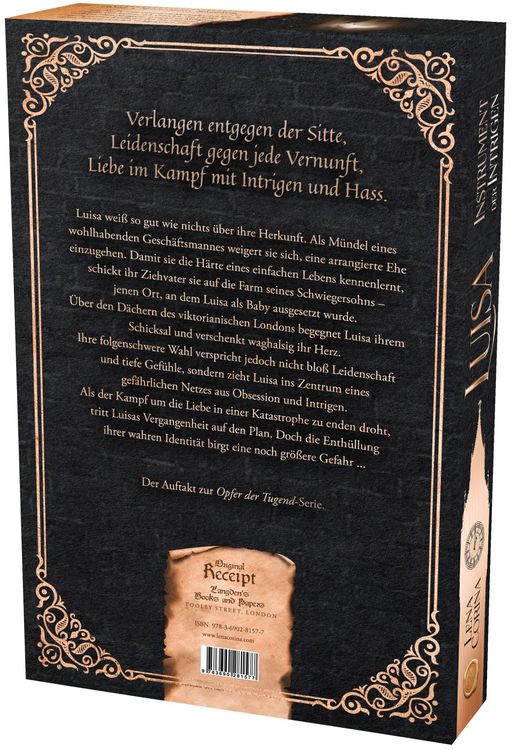 Verlangen entgegen der Sitte,
Leidenschaft gegen jede Vernunft,
Liebe im Kampf mit Intrigen und Hass.
Luisa weiß so gut wie nichts über ihre Herkunft. Als Mündel eines
wohlhabenden Geschäftsmannes weigert sie sich, eine arrangierte Ehe
einzugehen. Damit sie die Härte eines einfachen Lebens kennenlernt,
schickt ihr Ziehvater sie auf die Farm seines Schwiegersohns –
jenen Ort, an dem Luisa als Baby ausgesetzt wurde.
Über den Dächern des viktorianischen Londons begegnet Luisa ihrem
Schicksal und verschenkt waghalsig ihr Herz.
Ihre folgenschwere Wahl verspricht jedoch nicht bloß Leidenschaft
und tiefe Gefühle, sondern zieht Luisa ins Zentrum eines
gefährlichen Netzes aus Obsession und Intrigen.
Als der Kampf um die Liebe in einer Katastrophe zu enden droht,
tritt Luisas Vergangenheit auf den Plan. Doch die Enthüllung
ihrer wahren Identität birgt eine noch größere Gefahr ...
Der Auftakt zur Opfer der Tugend-Serie.
Original
Receipt
Langden's
Books and Papers
TOOLEY STREET, LONDON
ISBN: 978-3-6902-8157-7
www.lenacorina.com
9783690281577
LUISA
INSTRUMENT
DER INTRIGEN
LENA
CORINA